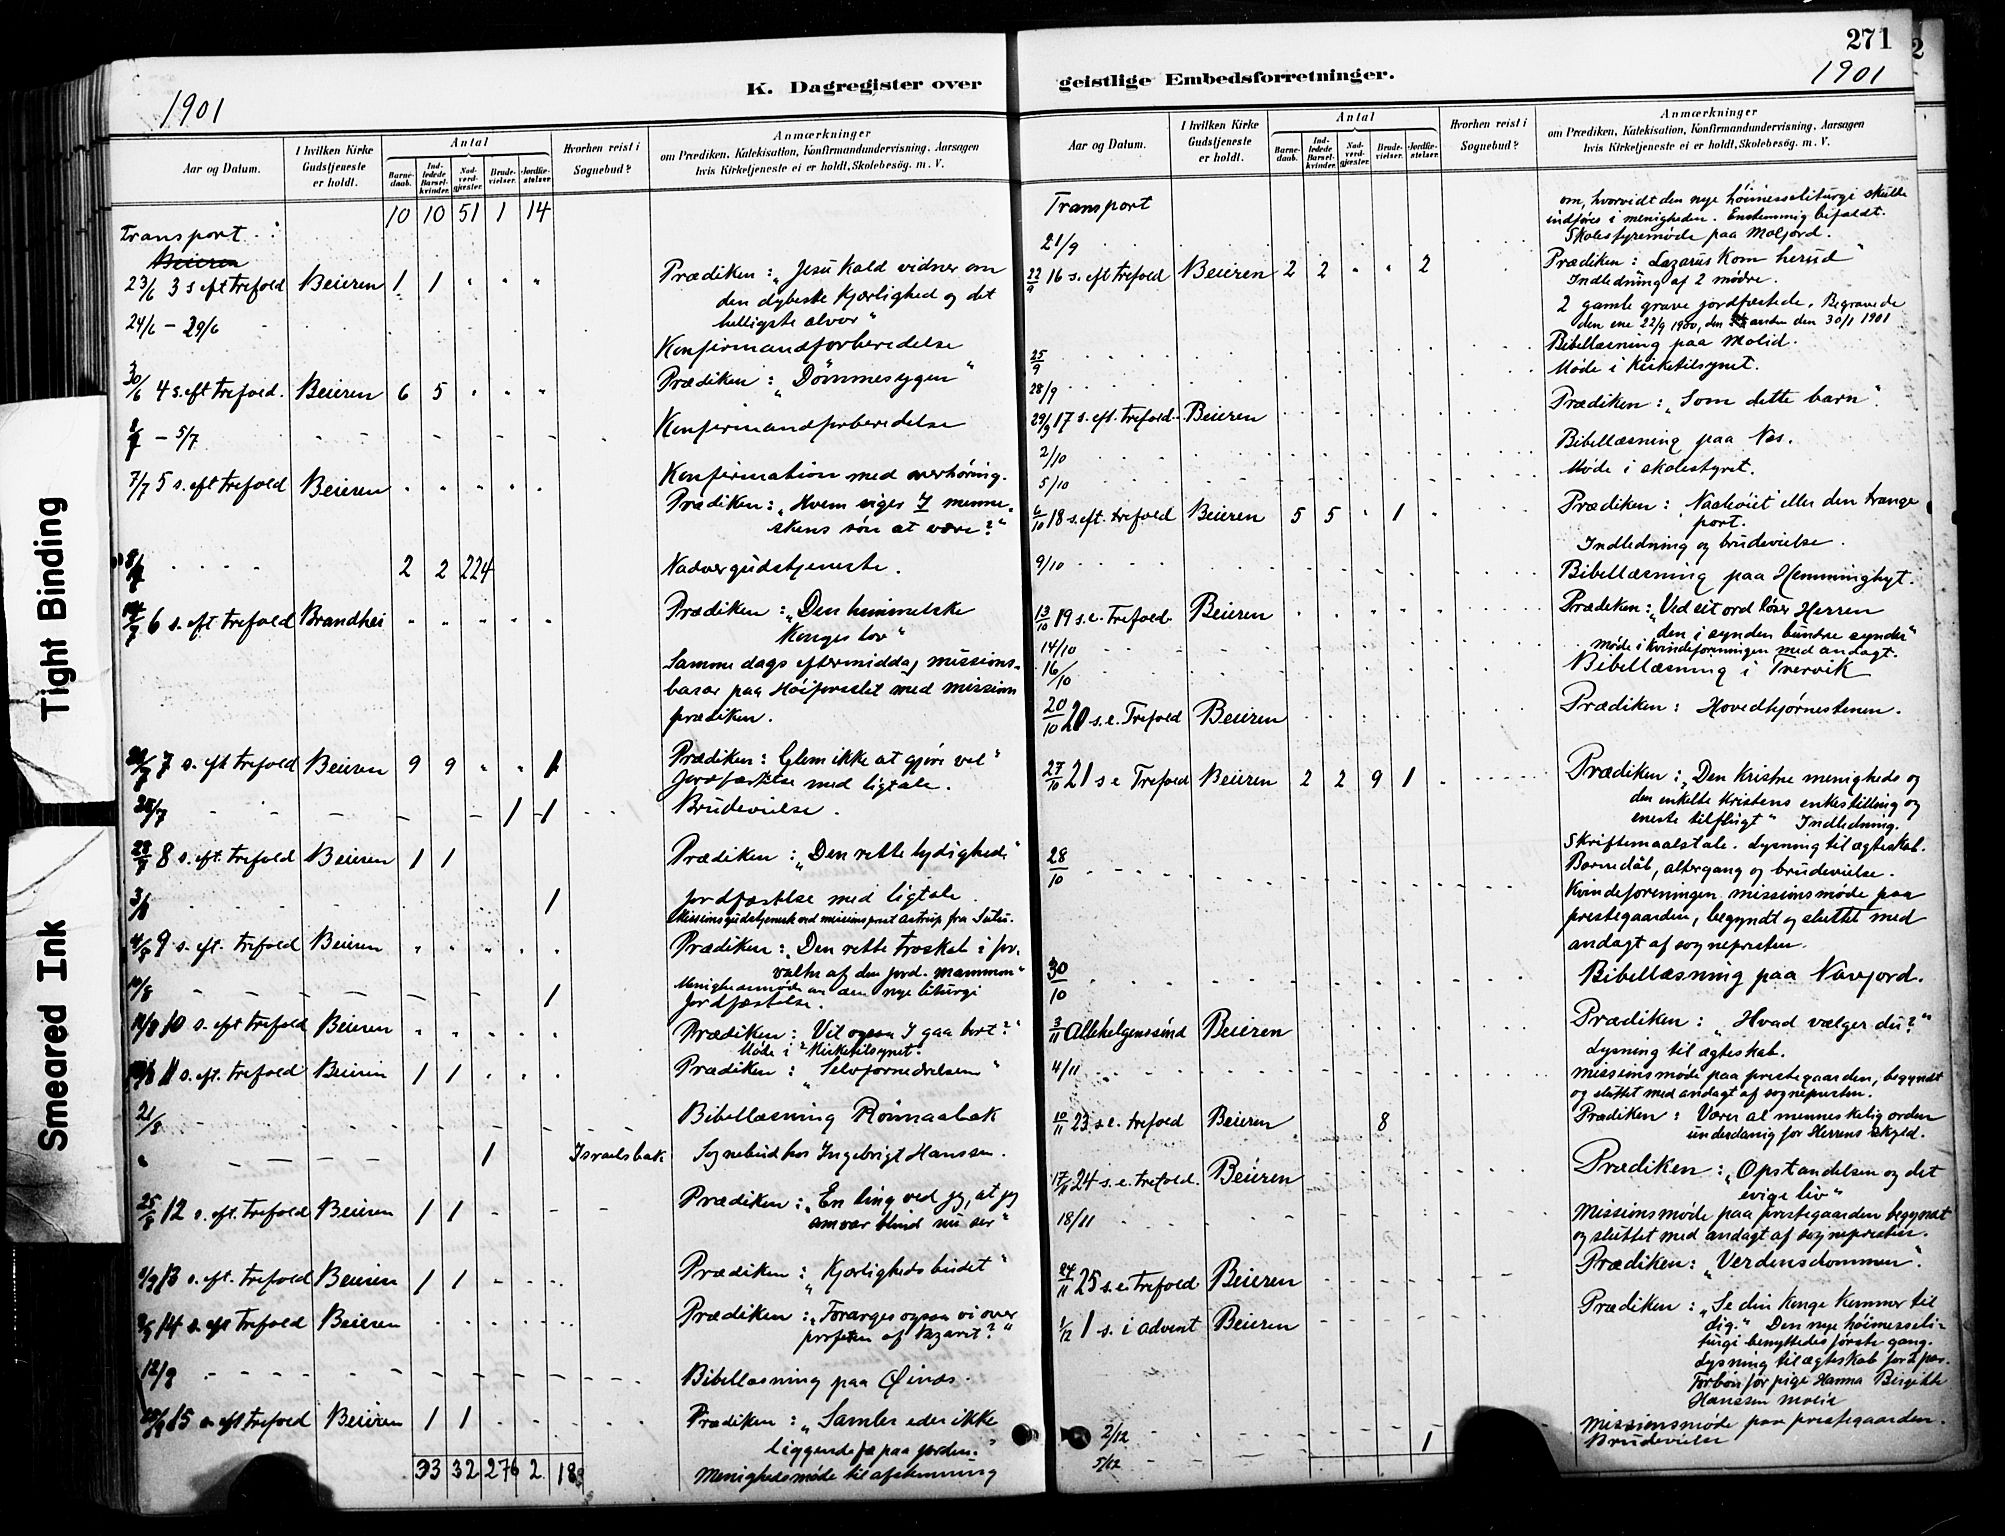 271
K. Dagregister over geistlige Embedsforretninger.
1901
1901
Tight Binding
Smeared Ink
Aar og Datum.
I hvilken Kirke Gudstjeneste er holdt.
Antal
Barnedaab.
Indledede Barselkvinder.
Nadverdgjæster.
Brudevielser.
Jordfæstelser.
Hvorhen reist i Sognebud?
Anmærkninger
om Prædiken, Katekisation, Konfirmandundervisning, Aarsagen
hvis Kirketjeneste ei er holdt, Skolebesøg. m. V.
Transport 10 10 51 1 14
Beieren
23/6 3 s eft trefold Beieren 1 1 Prædiken: "Jesu kald vidner om
den dybeste kjærlighed og det
helligste alvor"
24/6 - 29/6 Konfirmandforberedelse
30/6 4 s. eft trefold. Beieren 6 5 Prædiken: "Dömmesygen"
- 5/7 Konfirmandforberedelse
7/7 5 s. eft trefold Beieren Konfirmation med overhöring.
Prædiken: "Hvem siger I menne-
skens sön at være?"
2 2 224 Nadvergudstjeneste.
6 s. eft trefold Brandhei Prædiken: "Den himmelske
Konges lov"
Samme dags eftermiddag missions-
basar paa Höiforslet med missions
prædiken.
7 s. eft trefold Beieren 9 9 1 Prædiken: Glem ikke at gjöre vel"
Jordfæstelse med ligtale.
1 1 Brudevielse.
28/7 8 s. eft. trefold Beieren 1 1 Prædiken: "Den rette lydighed"
3/8 1 Jordfæstelse med ligtale.
Missionsgudstjeneste ved missionsprest Astrup fra Sulu.
4/8 9 s. eft. trefold Beieren Prædiken: "Den rette troskab i for-
valtn af den jord. mammon"
1 Menighedsmöde om den nye liturgi
Jordfæstelse.
10 s. eft trefold Beieren Prædiken: "Vil ogsaa I gaa bort?"
Möde i Kirketilsynet.
11 s. eft. trefold Beieren 1 1 Prædiken: "Selvfornedrelsen"
21/8 Bibellæsning
1 Israelsbak Sognebud hos Ingebrigt Hanssen.
25/8 12 s. eft. trefold Beieren 1 1 Prædiken: "En ting ved jeg, at jeg
som var blind nu ser"
1/9 13 s. eft. trefold Beieren 1 1 Prædiken: "Kjærlighedsbudet"
14 s. eft trefold Beieren Prædiken: "Forarges ogsaa vi over
profeten af Nazaret?"
12/9 Bibellæsning paa Öinæs.
15 s. eft trefold Beieren 1 1 Prædiken: "Samler eder ikke
liggendefæ paa jorden."
33 32 276 2 18 Menighedsmöde til afstemning
Aar og Datum.
I hvilken Kirke Gudstjeneste er holdt.
Antal
Barnedaab.
Indledede Barselkvinder.
Nadverdgjæster.
Brudevielser.
Jordfæstelser.
Hvorhen reist i Sognebud?
Anmærkninger
om Prædiken, Katekisation, Konfirmandundervisning, Aarsagen
hvis Kirketjeneste ei er holdt, Skolebesøg. m. V.
Transport om, hvorvidt den nye höimesseliturgi skulde
indföres i menigheden. Enstemmig bifaldt.
21/9 Skolestyremöde paa Moljord.
22/9 16 s. eft trefold Beieren 2 2 2 Prædiken: Lazarus kom herud"
Indledning af 2 mödre.
2 gamle grave jordfæstede. Begravede
den ene 22/9 1900, den anden den 30/1 1901
25/9 Bibellæsning paa Molid.
28/9 Möde i Kirketilsynet.
29/9 17 s. eft. trefold Beieren Prædiken: "Som dette barn"
2/10 Bibellæsning paa Næs.
5/10 Möde i skolestyret.
6/10 18 s. eft. trefold Beieren 5 5 1 Prædiken: Naaleöiet eller den trange
port.
Indledning og brudevielse.
9/10 Bibellæsning paa
13/10 19 s. e. Trefold Beieren Prædiken: "Ved sit ord löser Herren
den i synden bundne synder"
14/10 Möde i kvindeforeningen med andagt.
16/10 Bibellæsning i Trervik
20/10 20 s. e. Trefold Beieren Prædiken: Hovedhjörnestenen.
27/10 21 s e Trefold Beieren 2 2 9 1 Prædiken: "Den Kristne menigheds og
den enkelte kristens enkestilling og
eneste tilflugt" Indledning.
Skriftemaalstale. Lysning til ægteskab.
Barnedåb, altergang og brudevielse.
28/10 Kvindeforeningen, missionsmöde paa
prestegaarden, begyndt og sluttet med
andagt af sognepresten.
30/10 Bibellæsning paa Navjord.
3/11 Allehelgenssönd Beieren Prædiken: "Hvad vælger du?"
Lysning til ægteskab.
4/11 Missionsmöde paa prestegaarden, begyndt
og sluttet med andagt af sognepresten.
10/11 23 s. e. trefold Beieren 8 Prædiken: Værer al menneskelig orden
underdanig for Herrens skyld.
17/11 24 s. e. trefold. Beieren Prædiken: "Opstandelsen og det
evige liv"
18/11 Missionsmöde paa prestegaarden begyndt
og sluttet med andagt af sognepresten.
24/11 25 s. e. trefold Beieren Prædiken: "Verdensdommen".
1/12 1 s. i advent Beieren Prædiken: "Se din Konge kommer til
dig." Den nye höimesseli-
turgi benyttedes förste gang.
Lysning til ægteskab for 2 par.
Forbön for pige Hanna Birgitte
Hanssen Molid
2/12 Missionsmöde paa prestegaarden.
5/12 1 Brudevielse